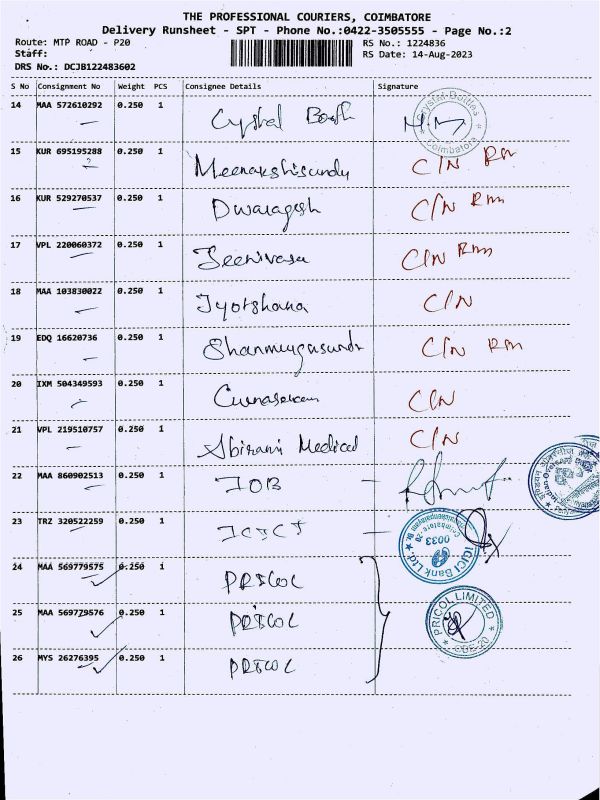 THE PROFESSIONAL COURIERS, COIMBATORE
Delivery Runsheet - SPT - Phone No.:0422-3505555 - Page No.:2
Route: MTP ROAD - P20 RS No.: 1224836
Staff: RS Date: 14-Aug-2023
DRS No.: DCJB122483602
S No Consignment No Weight PCS Consignee Details Signature
14 MAA 572610292 0.250 1 Crystal Bottles Coimbatore
15 KUR 695195288 0.250 1 Meenakshisundu C/N Rm
16 KUR 529270537 0.250 1 Dwaragesh C/N Rm
17 VPL 220060372 0.250 1 Seenivasa C/N Rm
18 MAA 103830022 0.250 1 Jyotshana C/N
19 EDQ 16620736 0.250 1 Shanmugasundr C/N Rm
20 IXM 504349593 0.250 1 Gunasekaran C/N
21 VPL 219510757 0.250 1 Abirami Medical C/N
22 MAA 860902513 0.250 1 IOB
23 TRZ 320522259 0.250 1 ICICI ICICI Bank Ltd. 0033 Coimbatore-20
24 MAA 569779575 0.250 1 PRICOL
25 MAA 569779576 0.250 1 PRICOL PRICOL LIMITED CBE-20
26 MYS 26276395 0.250 1 PRICOL